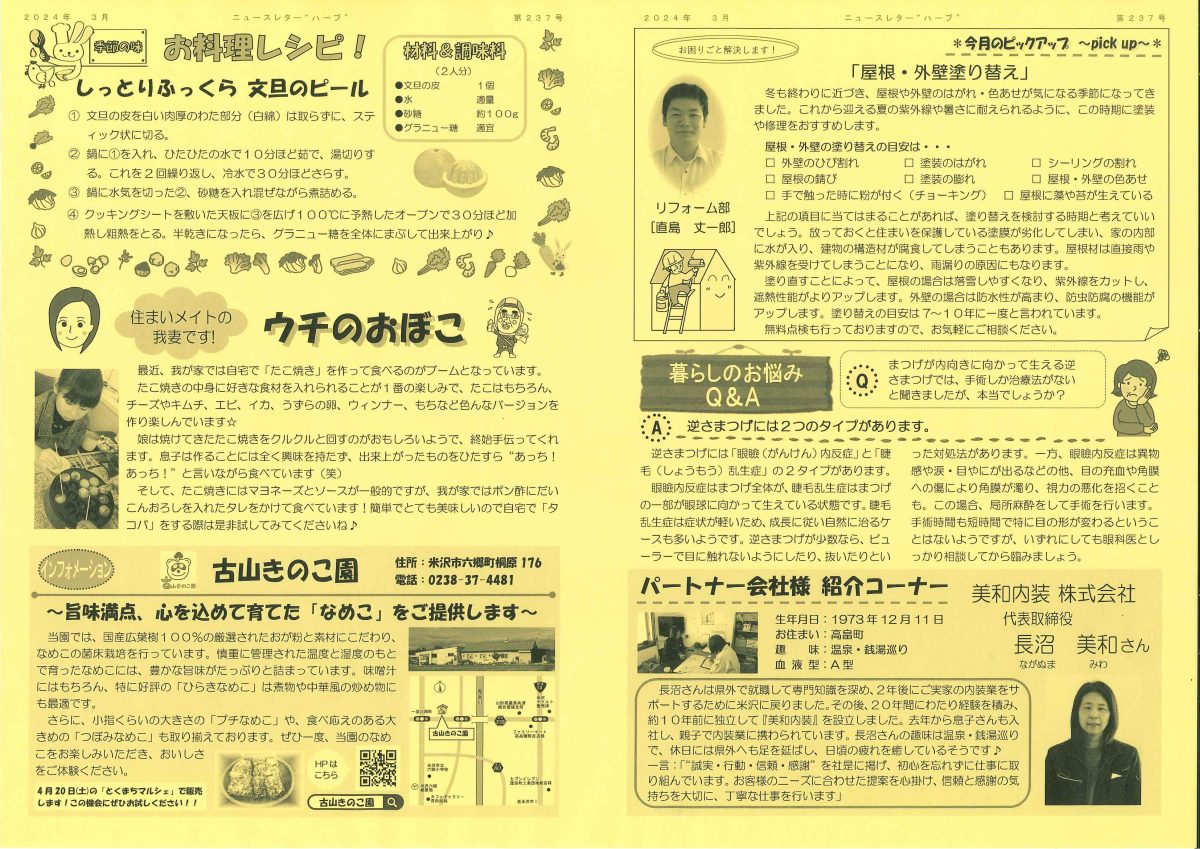 2024年 3月
ニュースレター"ハーブ"
第237号
季節の味
お料理レシピ！
しっとりふっくら 文旦のピール
① 文旦の皮を白い肉厚のわた部分（白綿）は取らずに、ステ
ィック状に切る。
② 鍋に①を入れ、ひたひたの水で10分ほど茹で、湯切りす
る。これを2回繰り返し、冷水で30分ほどさらす。
③ 鍋に水気を切った②、砂糖を入れ混ぜながら煮詰める。
④ クッキングシートを敷いた天板に③を広げ100℃に予熱したオーブンで30分ほど加
熱し粗熱をとる。半乾きになったら、グラニュー糖を全体にまぶして出来上がり♪
材料＆調味料
（2人分）
●文旦の皮 1個
●水 適量
●砂糖 約100g
●グラニュー糖 適宜
住まいメイトの
我妻です!
ウチのおぼこ
最近、我が家では自宅で「たこ焼き」を作って食べるのがブームとなっています。
たこ焼きの中身に好きな食材を入れられることが1番の楽しみで、たこはもちろん、
チーズやキムチ、エビ、イカ、うずらの卵、ウィンナー、もちなど色んなバージョンを
作り楽しんでいます☆
娘は焼けてきたたこ焼きをクルクルと回すのがおもしろいようで、終始手伝ってくれ
ます。息子は作ることには全く興味を持たず、出来上がったものをひたすら"あっち！
あっち！"と言いながら食べています（笑）
そして、たこ焼きにはマヨネーズとソースが一般的ですが、我が家ではポン酢にだい
こんおろしを入れたタレをかけて食べています！簡単でとても美味しいので自宅で「タ
コパ」をする際は是非試してみてくださいね♪
インフォメーション
古山きのこ園
住所：米沢市六郷町桐原176
電話：0238-37-4481
～旨味満点、心を込めて育てた「なめこ」をご提供します～
当園では、国産広葉樹100％の厳選されたおが粉と素材にこだわり、
なめこの菌床栽培を行っています。慎重に管理された温度と湿度のもと
で育ったなめこには、豊かな旨味がたっぷりと詰まっています。味噌汁
にはもちろん、特に好評の「ひらきなめこ」は煮物や中華風の炒め物に
も最適です。
さらに、小指くらいの大きさの「プチなめこ」や、食べ応えのある大
きめの「つぼみなめこ」も取り揃えております。ぜひ一度、当園のなめ
こをお楽しみいただき、おいしさ
をご体験ください。
4月20日(土)の「とくまちマルシェ」で販売
します！この機会にぜひお試しください！！
HPは
こちら
古山きのこ園
古山きのこ園
2024年 3月
ニュースレター"ハーブ"
第237号
お困りごと解決します！
＊今月のピックアップ ～pick up～＊
「屋根・外壁塗り替え」
冬も終わりに近づき、屋根や外壁のはがれ・色あせが気になる季節になってき
ました。これから迎える夏の紫外線や暑さに耐えられるように、この時期に塗装
や修理をおすすめします。
屋根・外壁の塗り替えの目安は・・・
□ 外壁のひび割れ □ 塗装のはがれ □ シーリングの割れ
□ 屋根の錆び □ 塗装の膨れ □ 屋根・外壁の色あせ
□ 手で触った時に粉が付く（チョーキング） □ 屋根に藻や苔が生えている
リフォーム部
[直島 丈一郎]
上記の項目に当てはまることがあれば、塗り替えを検討する時期と考えていい
でしょう。放っておくと住まいを保護している塗膜が劣化してしまい、家の内部
に水が入り、建物の構造材が腐食してしまうこともあります。屋根材は直接雨や
紫外線を受けてしまうことになり、雨漏りの原因にもなります。
塗り直すことによって、屋根の場合は落雪しやすくなり、紫外線をカットし、
遮熱性能がよりアップします。外壁の場合は防水性が高まり、防虫防腐の機能が
アップします。塗り替えの目安は7～10年に一度と言われています。
無料点検も行っておりますので、お気軽にご相談ください。
暮らしのお悩み
Q&A
Q
まつげが内向きに向かって生える逆
さまつげでは、手術しか治療法がない
と聞きましたが、本当でしょうか？
A 逆さまつげには2つのタイプがあります。
逆さまつげには「眼瞼（がんけん）内反症」と「睫
毛（しょうもう）乱生症」の2タイプがあります。
眼瞼内反症はまつげ全体が、睫毛乱生症はまつげ
の一部が眼球に向かって生えている状態です。睫毛
乱生症は症状が軽いため、成長に従い自然に治るケ
ースも多いようです。逆さまつげが少数なら、ビュ
ーラーで目に触れないようにしたり、抜いたりとい
った対処法があります。一方、眼瞼内反症は異物
感や涙・目やにが出るなどの他、目の充血や角膜
への傷により角膜が濁り、視力の悪化を招くこと
も。この場合、局所麻酔をして手術を行います。
手術時間も短時間で特に目の形が変わるというこ
とはないようですが、いずれにしても眼科医とし
っかり相談してから臨みましょう。
パートナー会社様 紹介コーナー
美和内装 株式会社
代表取締役
長沼 美和さん
ながぬま みわ
生年月日：1973年12月11日
お住まい：高畠町
趣 味：温泉・銭湯巡り
血 液 型：A型
長沼さんは県外で就職して専門知識を深め、2年後にご実家の内装業をサ
ポートするために米沢に戻りました。その後、20年間にわたり経験を積み、
約10年前に独立して『美和内装』を設立しました。去年から息子さんも入
社し、親子で内装業に携わられています。長沼さんの趣味は温泉・銭湯巡り
で、休日には県外へも足を延ばし、日頃の疲れを癒しているそうです♪
一言：「"誠実・行動・信頼・感謝"を社是に掲げ、初心を忘れずに仕事に取
り組んでいます。お客様のニーズに合わせた提案を心掛け、信頼と感謝の気
持ちを大切に、丁寧な仕事を行います」